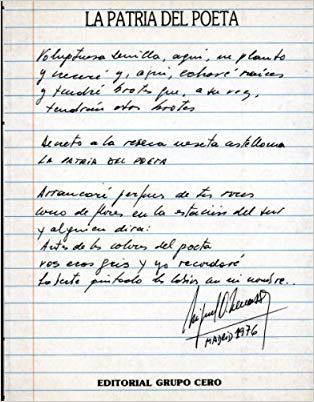 LA PATRIA DEL POETA
Voluptuosa semilla, aquí, me planto
y creceré y, aquí, echaré raíces
y tendré brotes que, a su vez,
tendrán otros brotes
Decreto a la reseca meseta castellana
LA PATRIA DEL POETA
Arrancaré de tus voces
como de flores en la estación del sur
y alguien dirá:
Antes de los colores del poeta
vos eras gris y yo recordaré
haberte pintado los labios con mi nombre..
Miguel O. Menassa
MADRID 1976
EDITORIAL GRUPO CERO